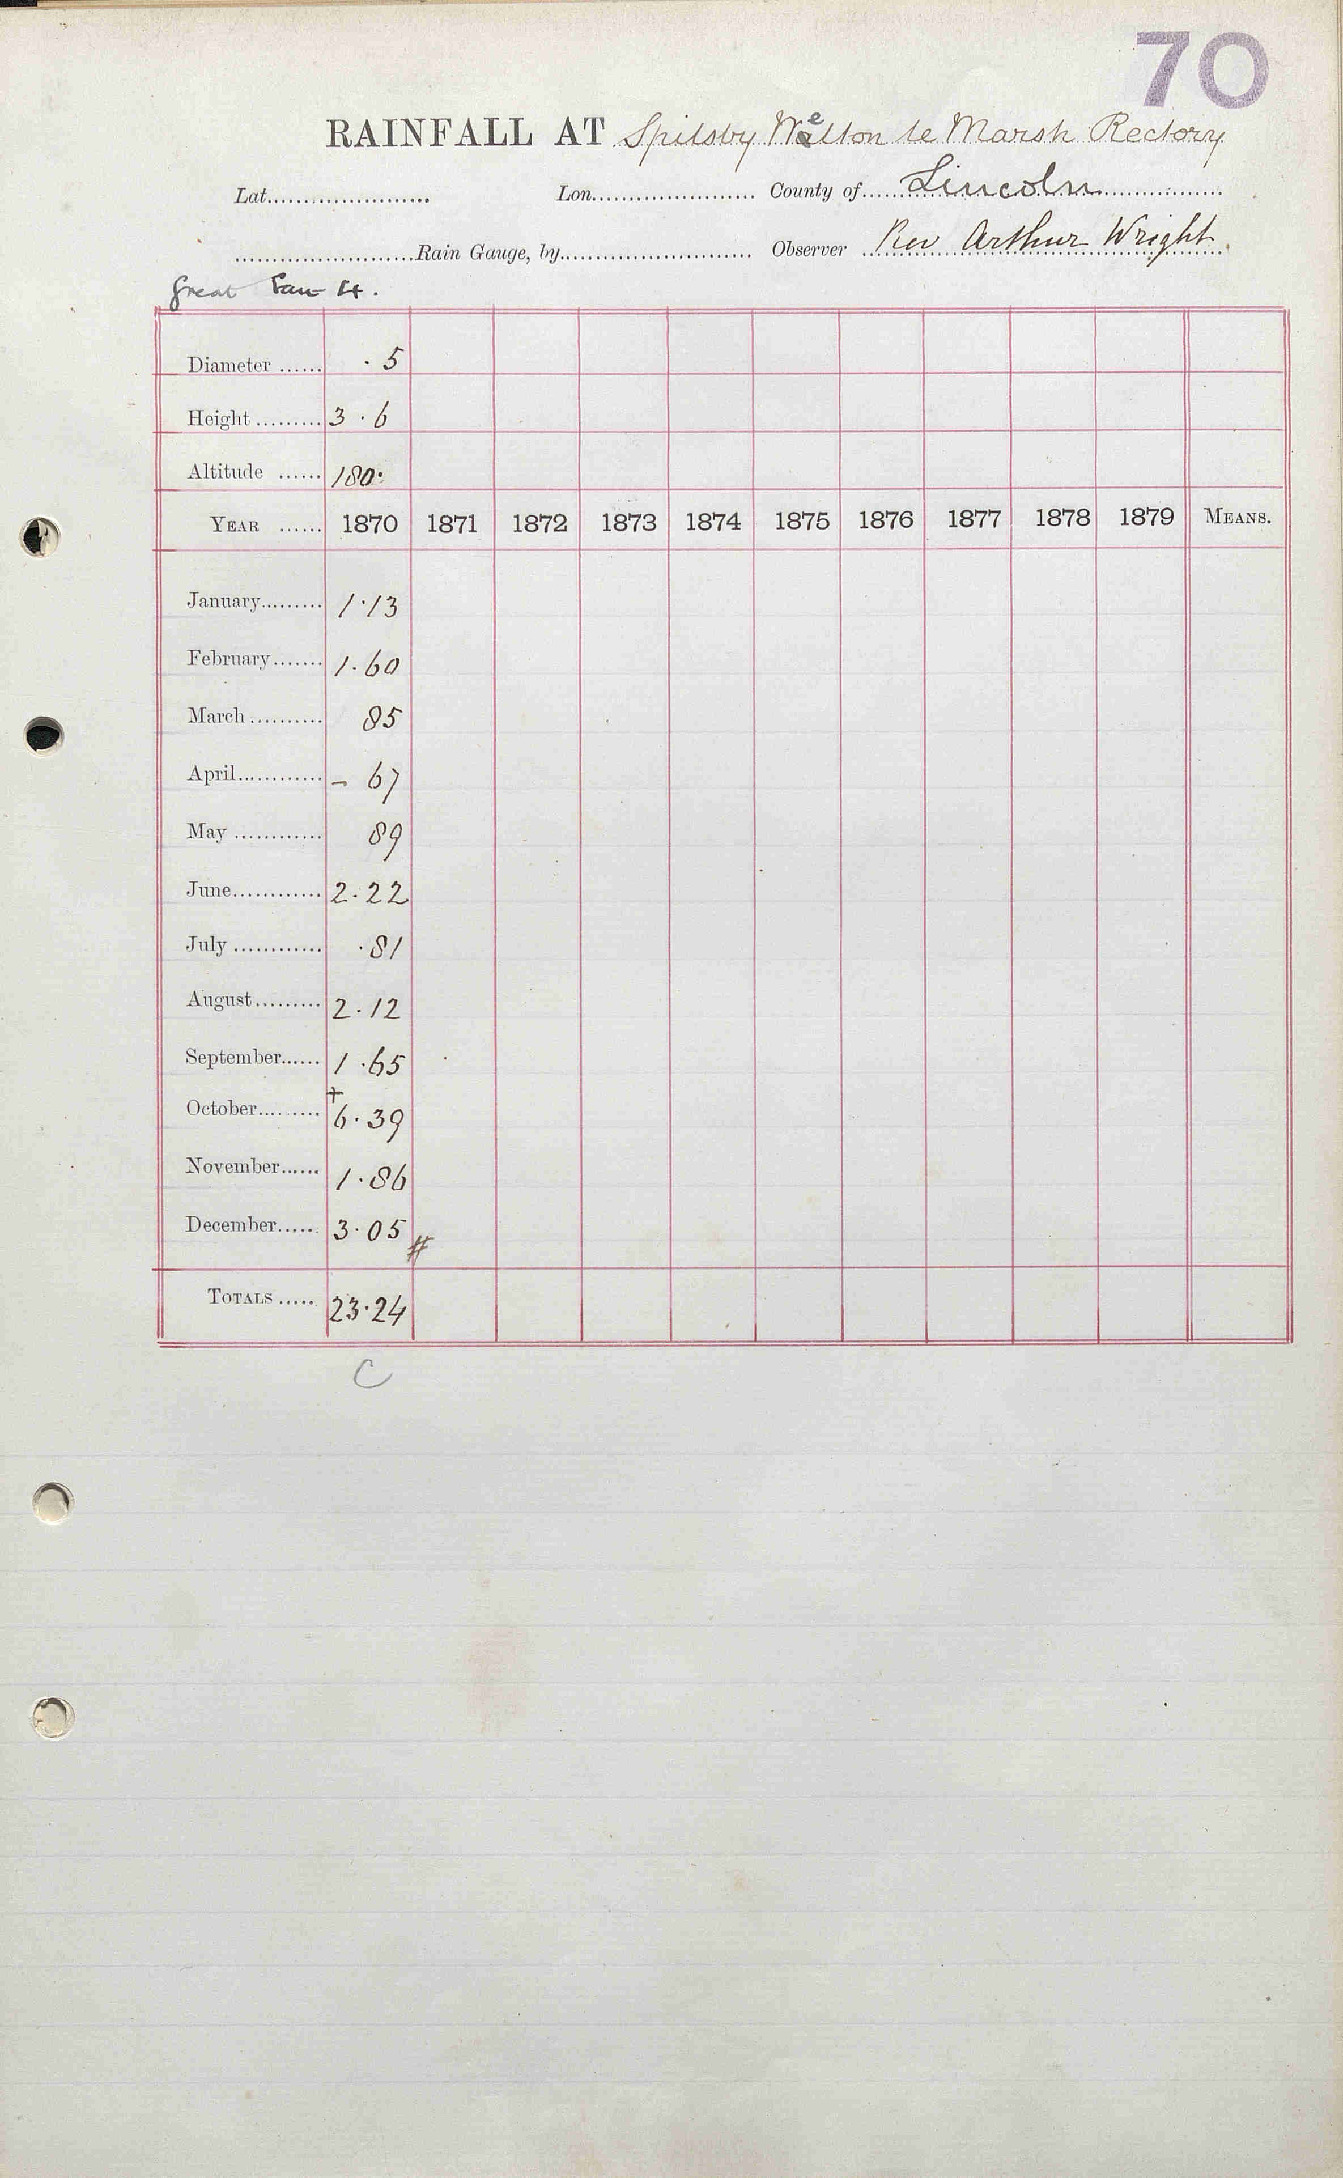 70
RAINFALL AT Spilsby Welton le Marsh Rectory
Lat...................... Lon...................... County of Lincoln
........................Rain Gauge, by........................... Observer Rev Arthur Wright
Great
Diameter ...... · 5
Height ......... 3 · 6
Altitude ...... 180·
YEAR ...... 1870 1871 1872 1873 1874 1875 1876 1877 1878 1879 MEANS.
January......... 1·13
February....... 1·60
March .......... 85
April............ – 67
May ............ 89
June............ 2·22
July ............ ·81
August......... 2·12
September...... 1·65
October......... + 6·39
November...... 1·86
December..... 3·05 #
TOTALS ..... 23·24
C